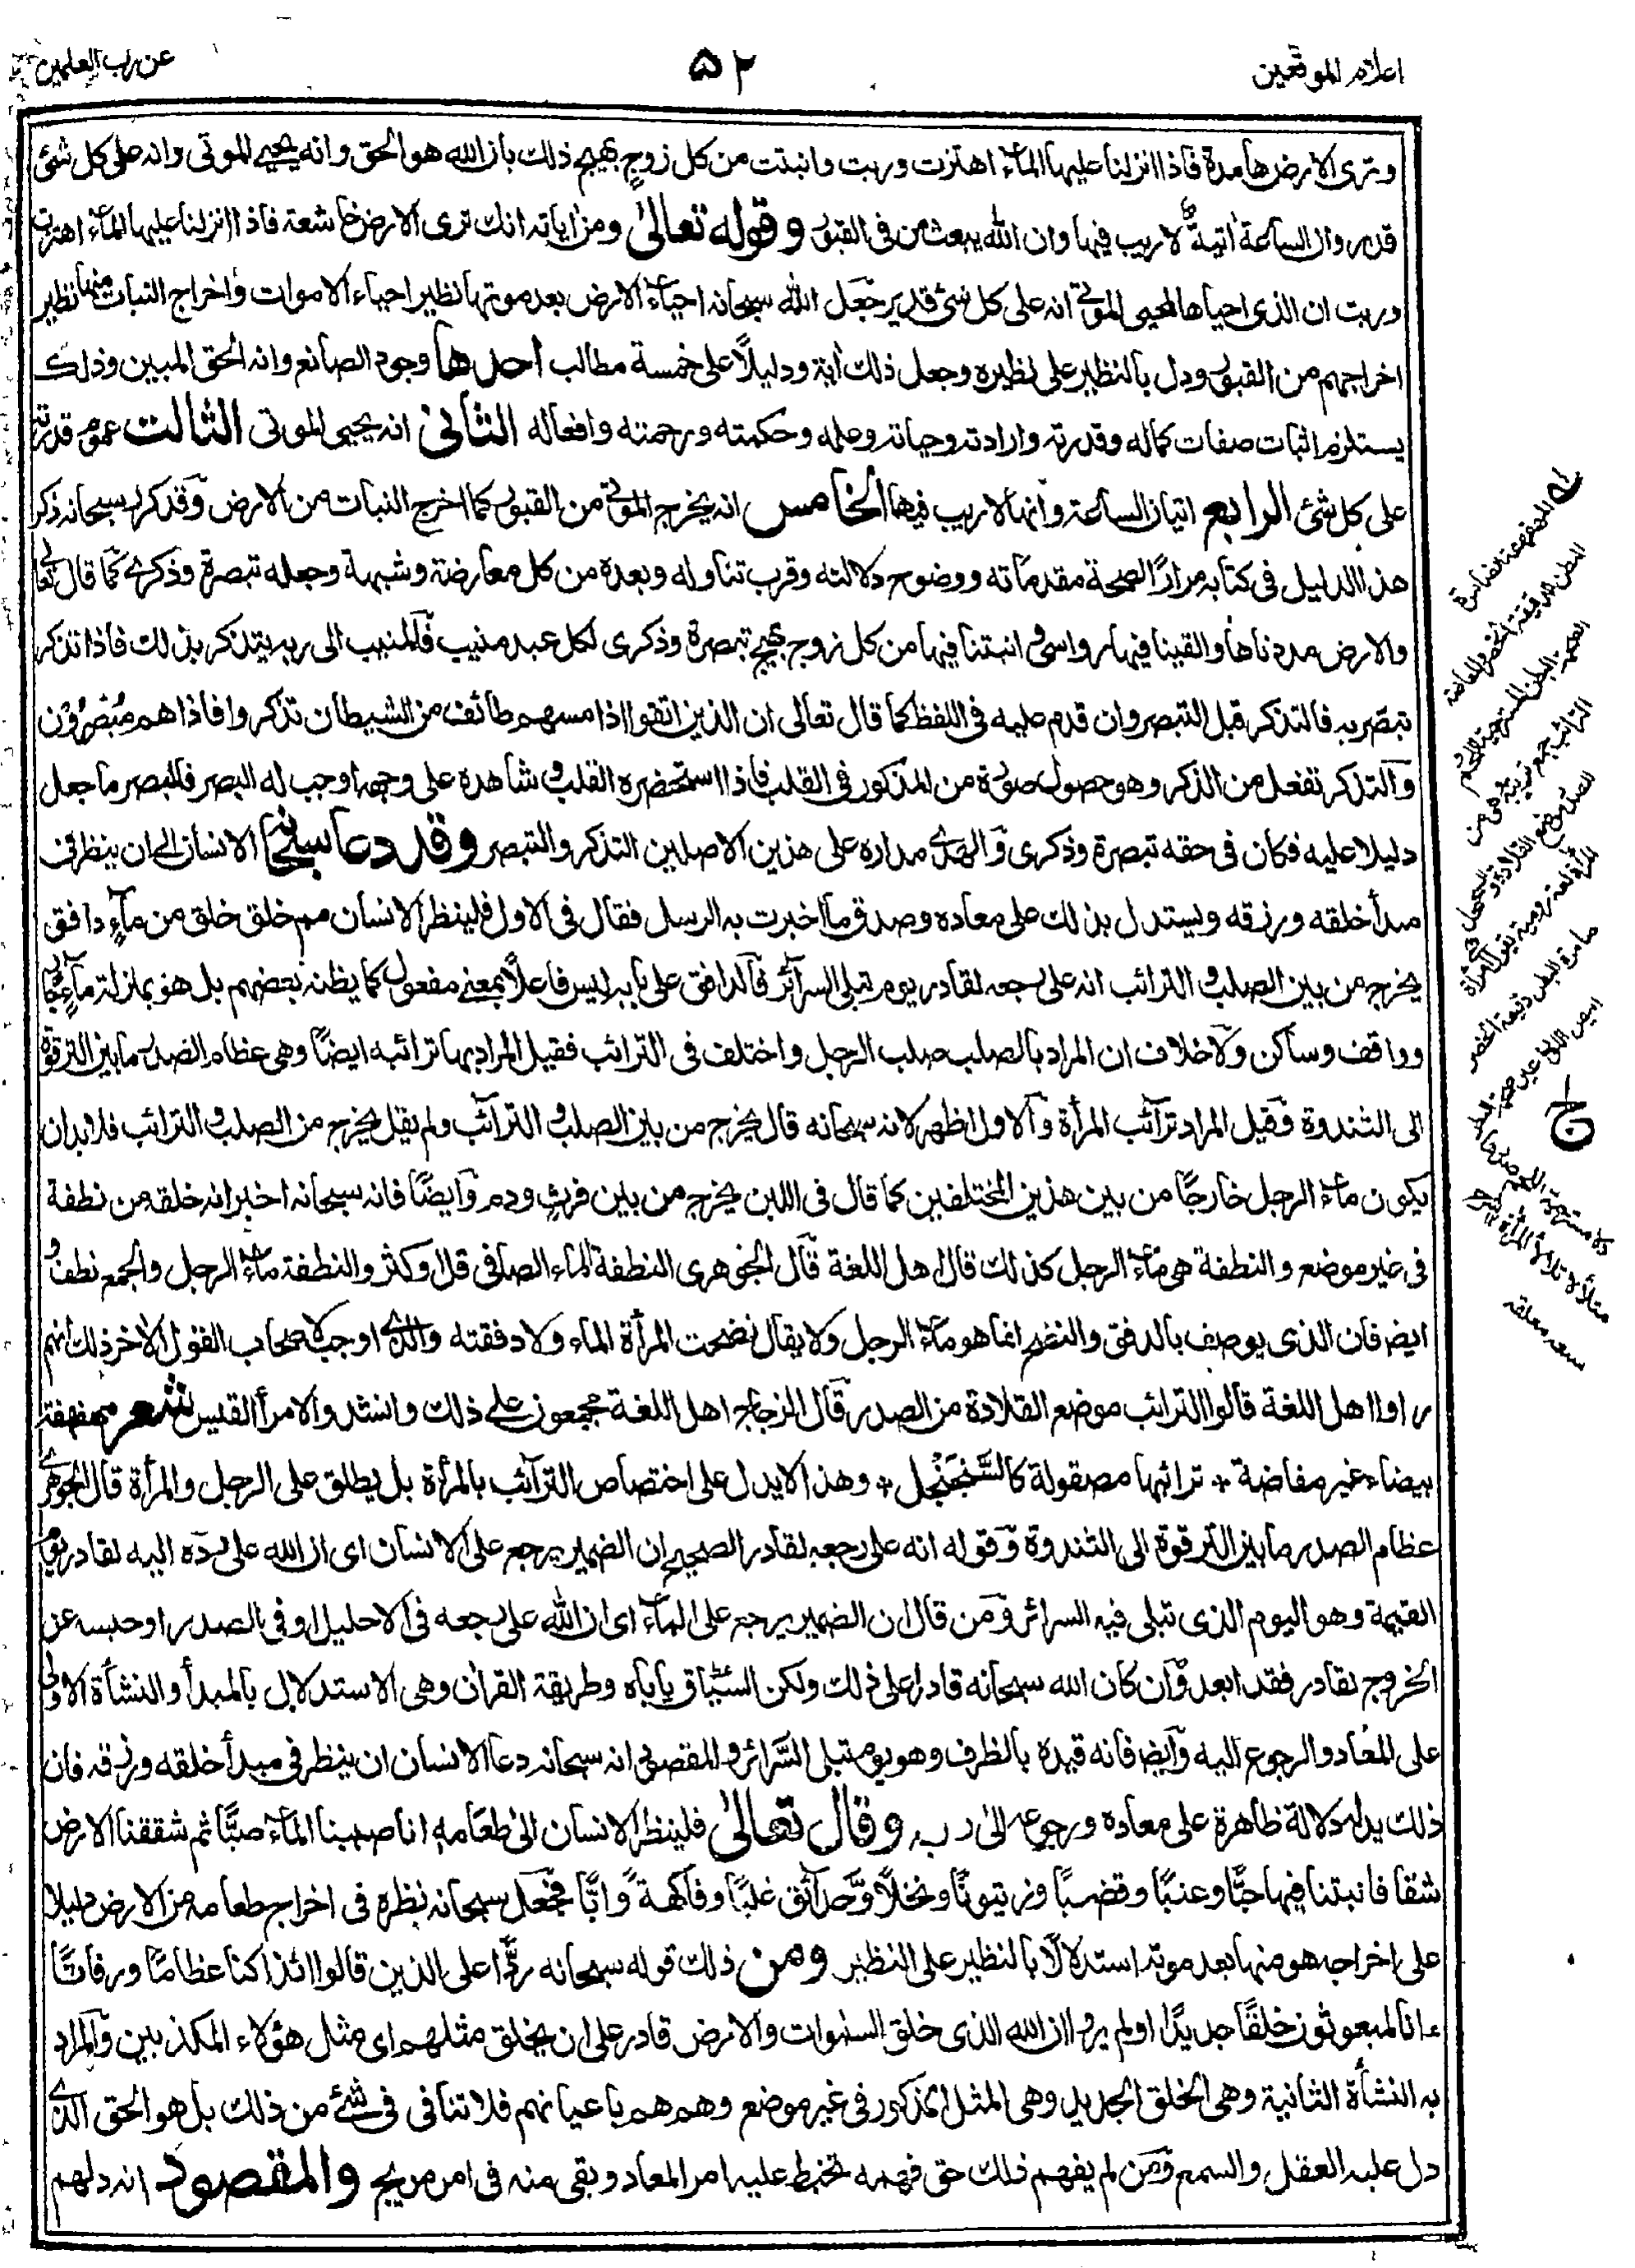 اعلام الموقعين
۵۲
عن رب العلمين
وترى الارض هامدة فاذا انزلنا عليها الماء اهتزت وربت وانبتت من كل زوج بهيج ذلك بان الله هو الحق وانه يحيي الموتى وانه على كل شئ
قدير وان الساعة اتية لا ريب فيها وان الله يبعث من فى القبور وقوله تعالى ومن اياته انك ترى الارض خاشعة فاذا انزلنا عليها الماء اهتزت
وربت ان الذى احياها لمحيى الموتى انه على كل شئ قدير جعل الله سبحانه احياء الارض بعد موتها نظير احياء الاموات واخراج النبات منها نظير
اخراجهم من القبور ودل بالنظير على نظيره وجعل ذلك اية ودليلاً على خمسة مطالب احدها وجود الصانع وانه الحق المبين وذلك
يستلزم اثبات صفات كماله وقدرته وارادته وحياته وعلمه وحكمته ورحمته وافعاله الثانى انه يحيى الموتى الثالث عموم قدرته
على كل شئ الرابع اتيان الساعة وانها لا ريب فيها الخامس انه يخرج الموتى من القبور كما اخرج النبات من الارض وقد كرر سبحانه ذكر
هذا الدليل فى كتابه مرارًا لصحة مقدماته ووضوح دلالته وقرب تناوله وبعده من كل معارضة وشبهة وجعله تبصرة وذكرى كما قال تعالى
والارض مددناها والقينا فيها رواسى وانبتنا فيها من كل زوج بهيج تبصرة وذكرى لكل عبد منيب فالمنيب الى ربه يتذكر بذلك فاذا تذكر
تبصر به فالتذكر قبل التبصر وان قدم عليه فى اللفظ كما قال تعالى ان الذين اتقوا اذا مسهم طائف من الشيطان تذكروا فاذا هم مُبْصِرُوْن
والتذكر تفعل من الذكر وهو حصول صورة من المذكور فى القلب فاذا استحضره القلب وشاهده على وجهه اوجب له البصر فالمبصر ما جعل
دليلا عليه فكان فى حقه تبصرة وذكرى والهدى مداره على هذين الاصلين التذكر والتبصر وقد دعا سبحانه الانسان الى ان ينظر فى
مبدأ خلقه ورزقه ويستدل بذلك على معاده وصدق ما اخبرت به الرسل فقال فى الاول فلينظر الانسان مم خلق خلق من ماءٍ دافق
يخرج من بين الصلب والترائب انه على رجعه لقادر يوم تبلى السرائر فالدافق على بابه ليس فاعلاً بمعنى مفعول كما يظنه بعضهم بل هو بمنزلة ماء جار
وواقف وساكن ولا خلاف ان المراد بالصلب صلب الرجل واختلف فى الترائب فقيل المراد بها ترائبه ايضًا وهى عظام الصدر ما بين الترقوة
الى الثندوة وقيل المراد ترائب المرأة والاول اظهر لانه سبحانه قال يخرج من بين الصلب والترائب ولم يقل يخرج من الصلب والترائب فلا بد ان
يكون ماء الرجل خارجًا من بين هذين المختلفين كما قال فى اللبن يخرج من بين فرث ودم وايضًا فانه سبحانه اخبر انه خلقه من نطفة
فى غير موضع والنطفة هى ماء الرجل كذلك قال اهل اللغة قال الجوهرى النطفة الماء الصافى قل او كثر والنطفة ماء الرجل والجمع نطف و
ايض فان الذى يوصف بالدفق والنضح انما هو ماء الرجل ولا يقال نضحت المرأة الماء ولا دفقته والذى اوجب لاصحاب القول الاخر ذلك انهم
راوا اهل اللغة قالوا الترائب موضع القلادة من الصدر قال الزجاج اهل اللغة مجمعون على ذلك وانشدوا لامرأ القيس شعر مهفهفة
بيضاء غير مفاضة + ترائبها مصقولة كالسَّجَنْجَل + وهذا لا يدل على اختصاص الترائب بالمرأة بل يطلق على الرجل والمرأة قال الجوهرى
عظام الصدر ما بين الترقوة الى الثندوة وقوله انه على رجعه لقادر الصحيح ان الضمير يرجع على الانسان اى ان الله على رده اليه لقادر يوم
القيمة وهو اليوم الذى تبلى فيه السرائر ومن قال ان الضمير يرجع على الماء اى ان الله على رجعه فى الاحليل او فى الصدر او حبسه عن
الخروج لقادر فقد ابعد وان كان الله سبحانه قادرا على ذلك ولكن السياق ياباه وطريقة القران وهى الاستدلال بالمبدأ والنشأة الاولى
على المعاد والرجوع اليه وايض فانه قيده بالظرف وهو يوم تبلى السَّرائر والمقصود انه سبحانه دعا الانسان ان ينظر فى مبدأ خلقه ورزقه فان
ذلك يدله دلالة ظاهرة على معاده ورجوعه الى ربه وقال تعالى فلينظر الانسان الى طعامه انا صببنا الماء صبًّا ثم شققنا الارض
شقا فانبتنا فيها حبًّا وعنبًا وقضبًا وزيتونًا ونخلاً وَّحدائق غلبًا وفاكهةً وابًّا فجعل سبحانه نظره فى اخراج طعامه من الارض دليلا
على اخراجه هو منها بعد موته استدلالًا بالنظير على النظير ومن ذلك قوله سبحانه ردًّا على الذين قالوا ائذا كنا عظامًا ورفاتًا
ءانا لمبعوثون خلقًا جديدًا اولم يروا ان الله الذى خلق السموات والارض قادر على ان يخلق مثلهم اى مثل هؤلاء المكذبين والمراد
به النشأة الثانية وهى الخلق الجديد وهى المثل المذكور فى غير موضع وهم هم باعيانهم فلا تنافى فى شئ من ذلك بل هو الحق الذى
دل عليه العقل والسمع ومن لم يفهم ذلك حق فهمه تخبط عليه امر المعاد وبقى منه فى امر مريج والمقصود انه دلهم
المهفهفة
البطن الدقيقة الخصر والمفاضة
العظيمة البطن المسترخية اللحم
الترائب جمع تريبة وهى من
الصدر موضع القلادة والسجنجل
المرأة لغة رومية يقول المرأة
ضامرة البطن دقيقة الخصر